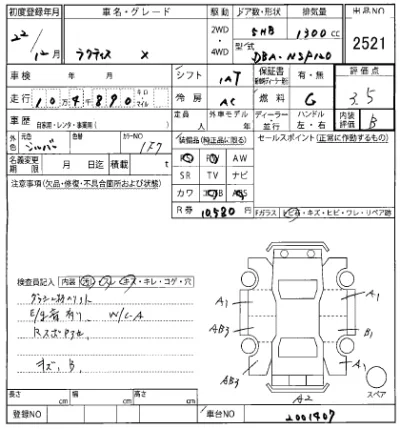 初度登録年月 車名・グレード 駆動 ドア数・形状 排気量 出品NO
22/12月 ラクティス X 2WD・4WD 5HB 1300cc 2521
型式 DBA-NSP120
車検 年 月 シフト IAT 保証書 有・無 評価点
走行 10万4千890 キロ・マイル 冷房 AC 燃料 G 3.5
車歴 自家用・レンタ・事業用( ) 定員 人 外車モデル 年 ディーラー・並行 ハンドル 左・右 内装評価 B
外色 元色 シルバー 色替 カラーNO 1F7 装備品(純正品に限る) セールスポイント(正常に作動するもの)
名義変更期限 月 日迄 積載 t PS PW AW
SR TV ナビ
注意事項(欠品・修復・不具合箇所および状態)
カワ エアB ABS
R券 10,580円 Fガラス トビ石・キズ・ヒビ・ワレ・リペア跡
検査員記入 内装 汚・スレ・キズ・キレ・コゲ・穴
W/C.A
キズ、B、
A1 A1
AB3 B1
AB3 A1
A2
スペア
長さ cm 幅 cm 高さ cm
登録NO 車台NO 2001407